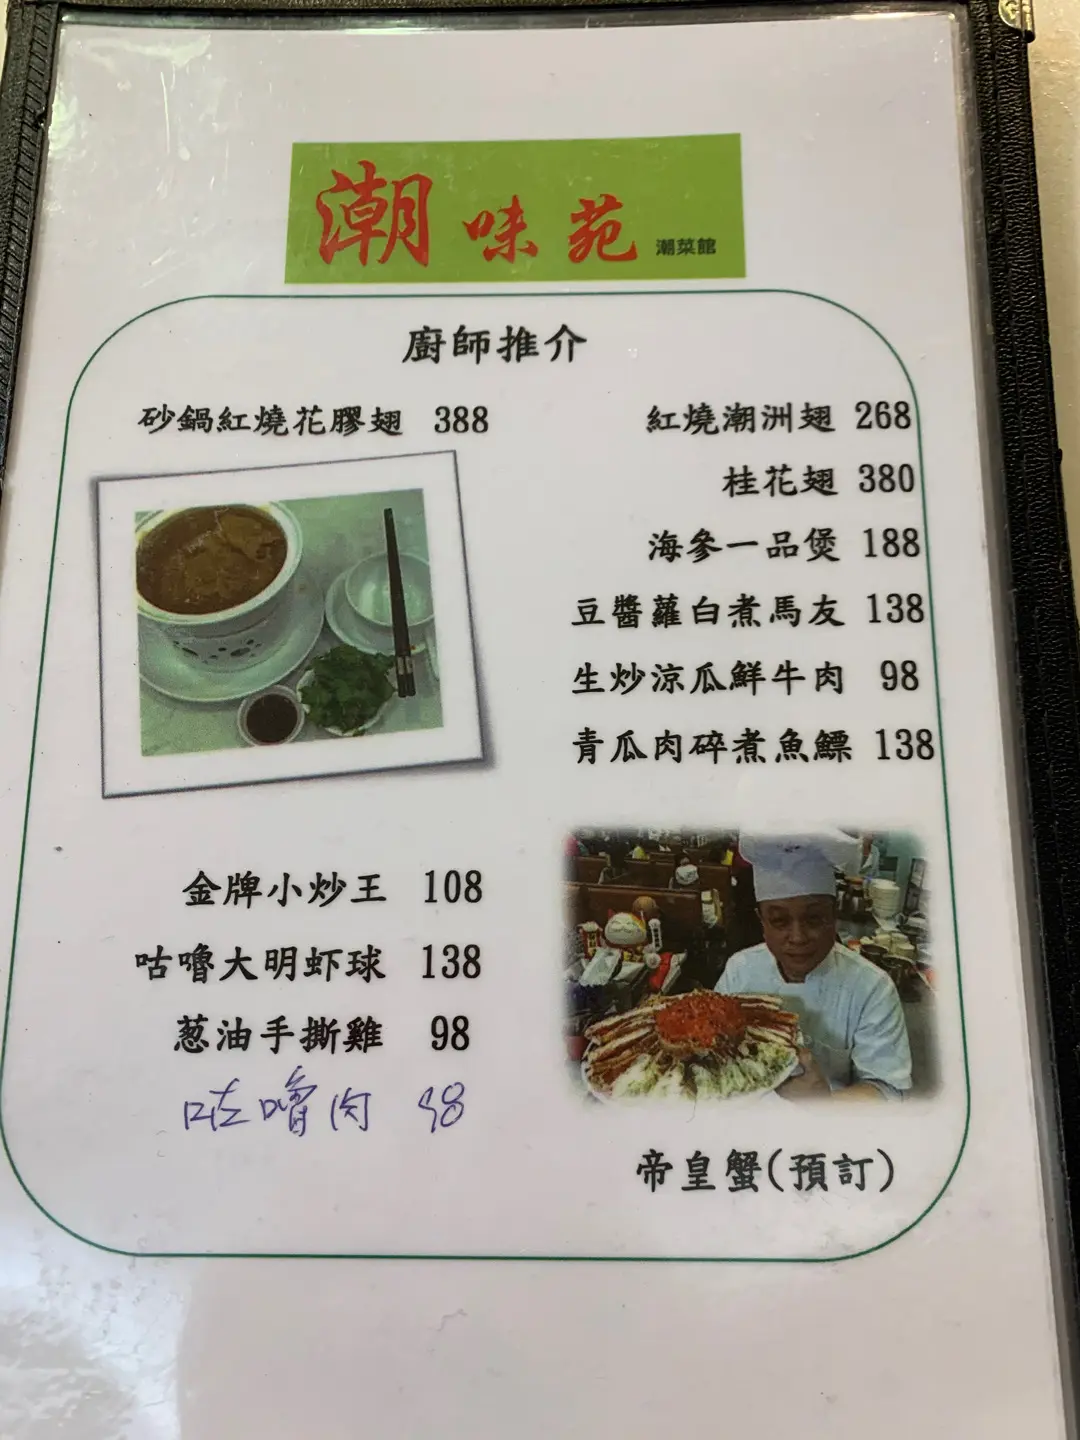 潮味苑 潮菜館
廚師推介
砂鍋紅燒花膠翅 388
紅燒潮洲翅 268
桂花翅 380
海參一品煲 188
豆醬蘿白煮馬友 138
生炒涼瓜鮮牛肉 98
青瓜肉碎煮魚鰾 138
金牌小炒王 108
咕嚕大明虾球 138
葱油手撕雞 98
咕嚕肉 98
帝皇蟹(預訂)